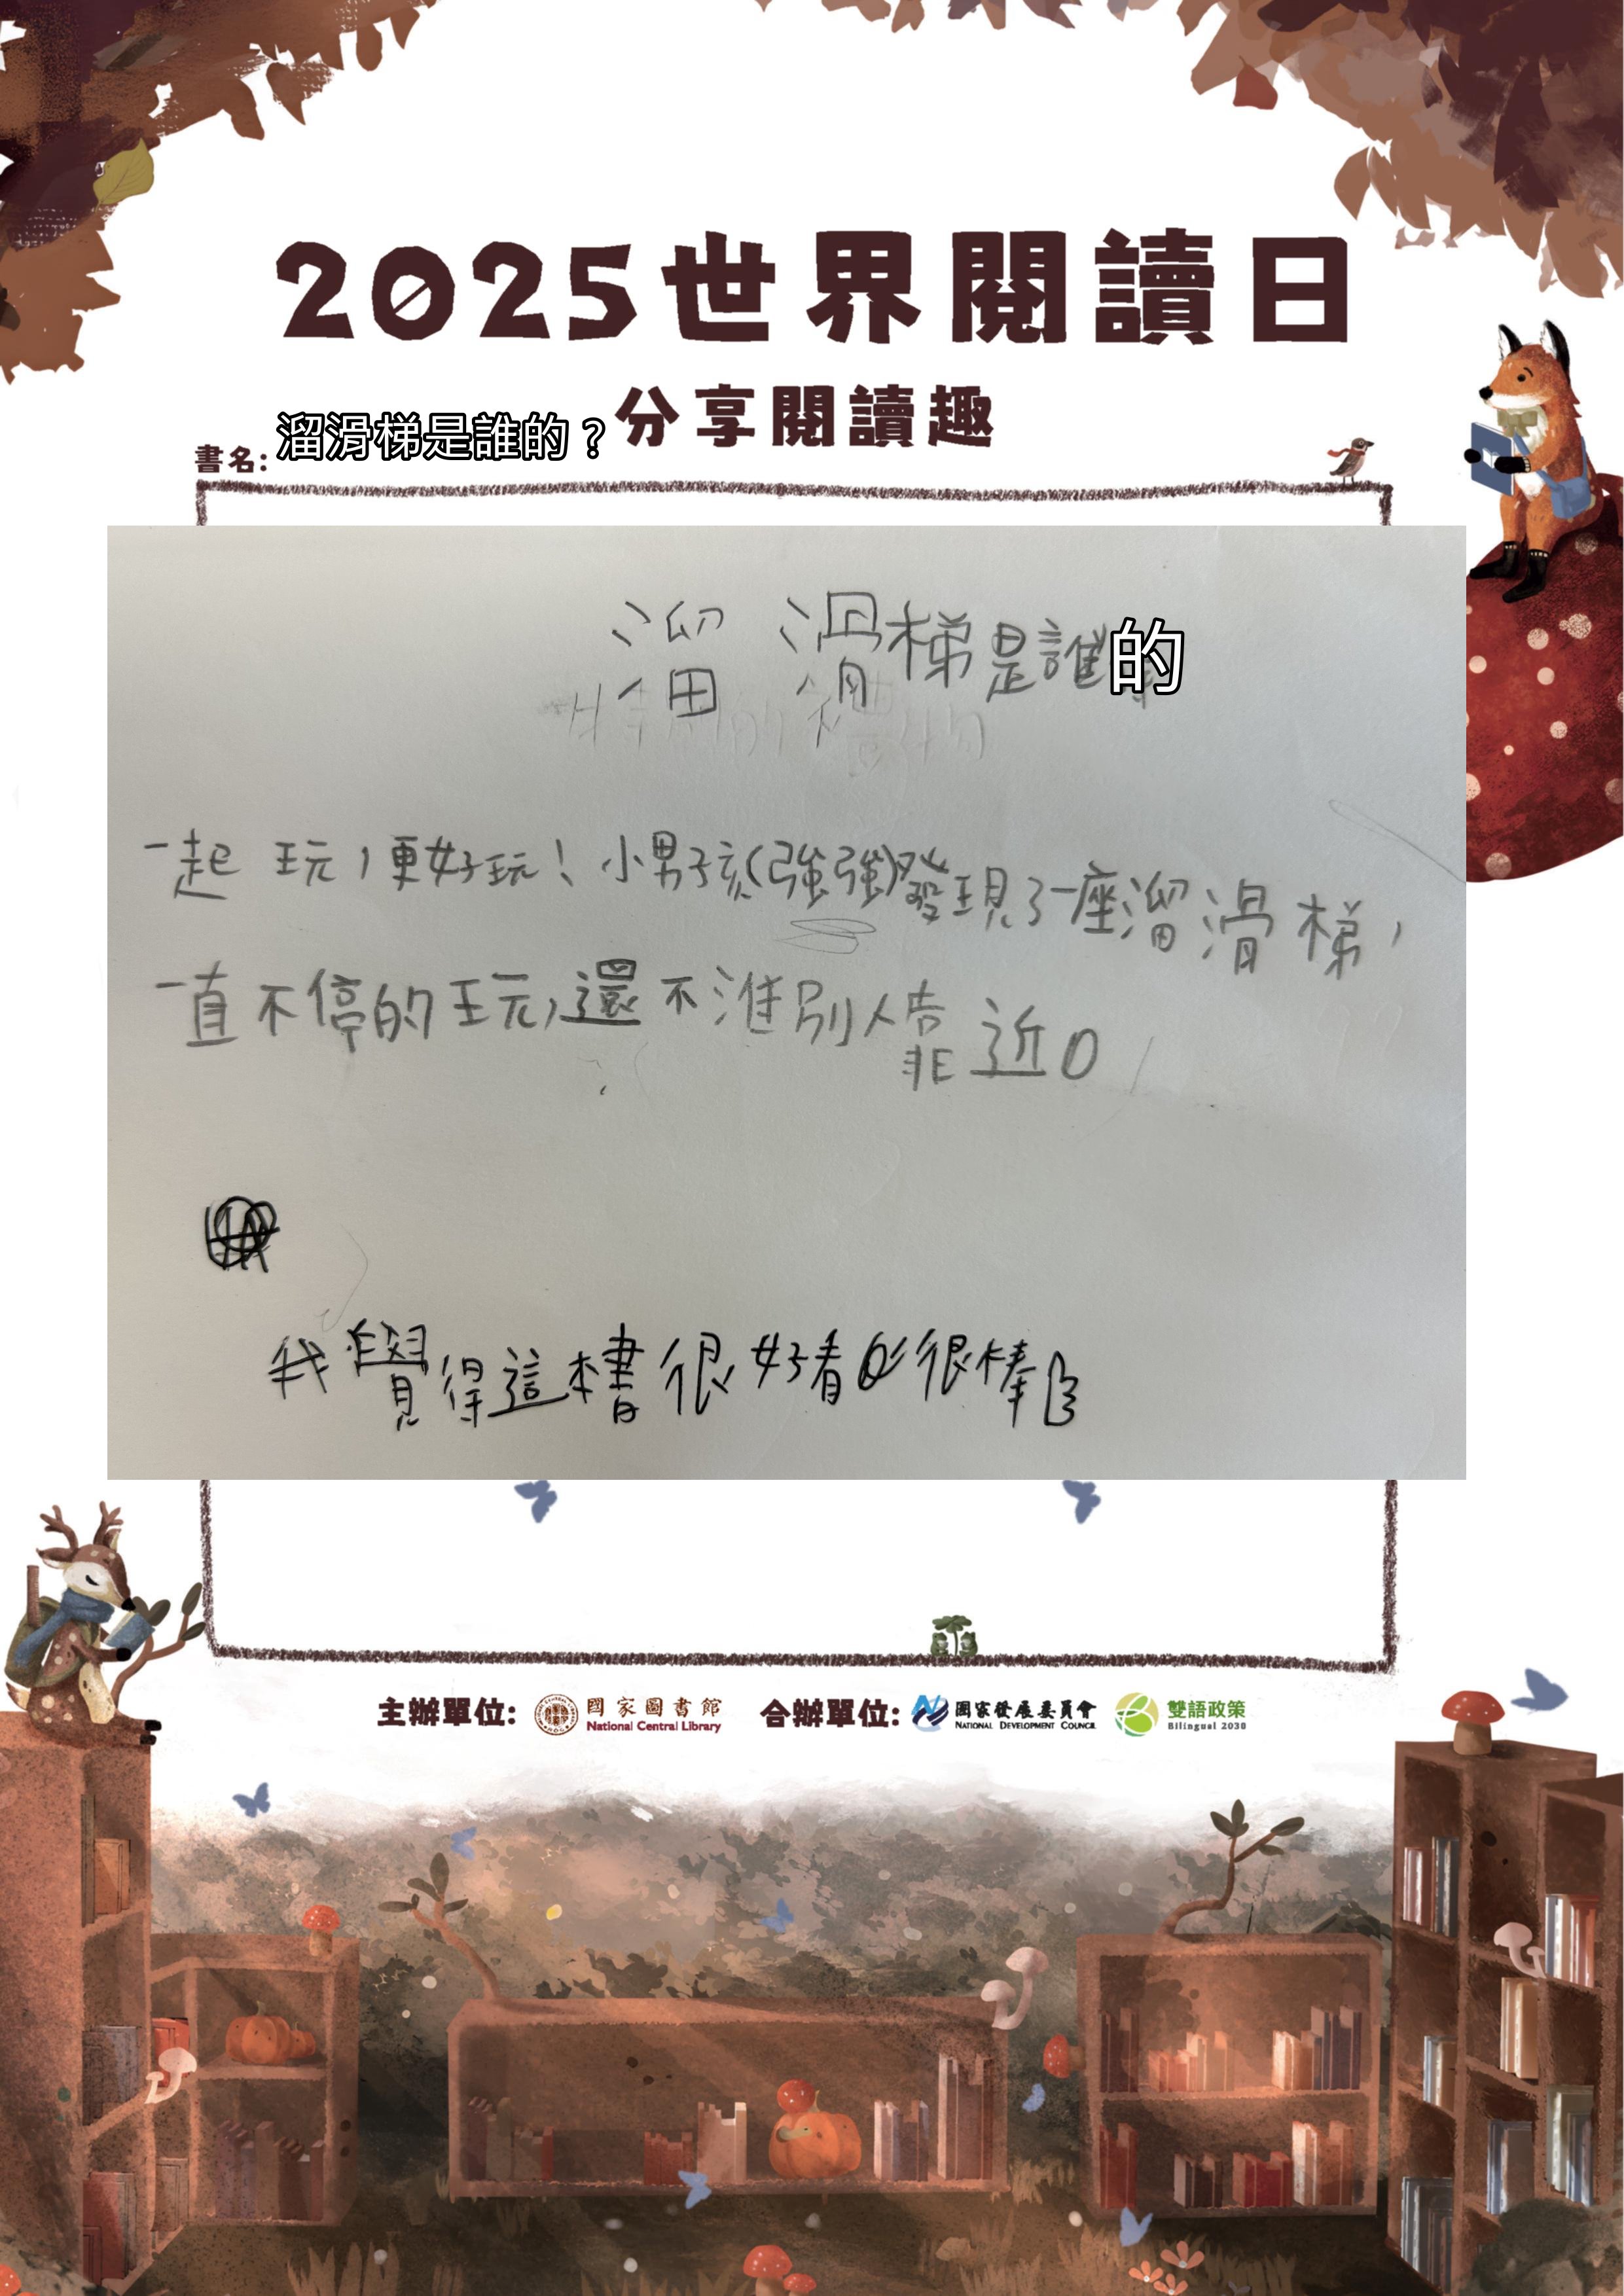 2025世界閱讀日
分享閱讀趣
書名: 溜滑梯是誰的？
溜滑梯是誰的
一起玩，更好玩！小男孩(強強)發現了一座溜滑梯，
一直不停的玩，還不准別人靠近。
我覺得這本書很好看 很棒
主辦單位: 國家圖書館 National Central Library 合辦單位: 國家發展委員會 NATIONAL DEVELOPMENT COUNCIL 雙語政策 Bilingual 2030